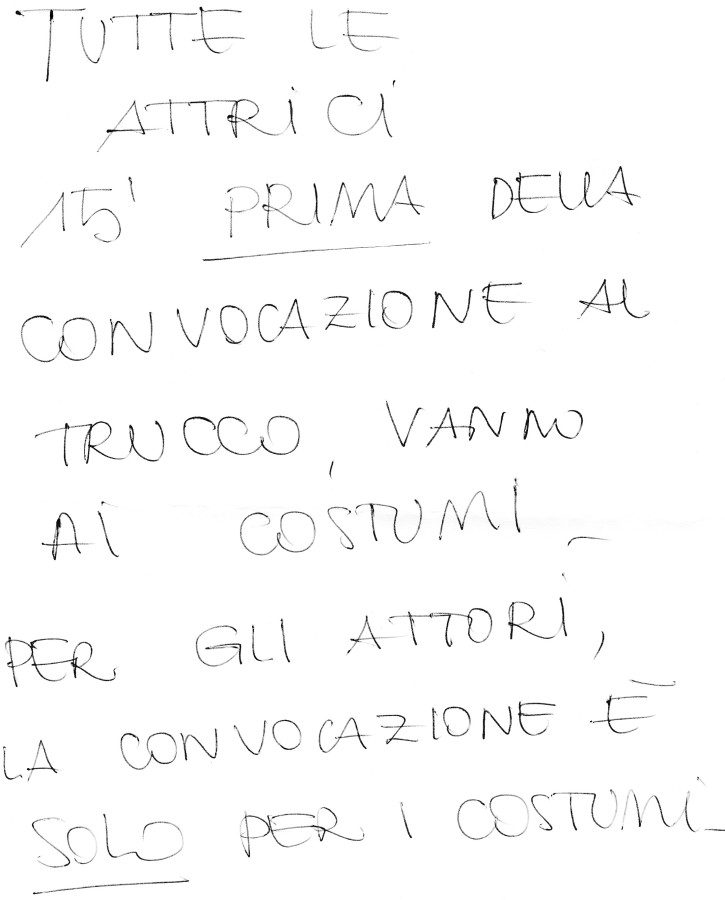 TUTTE LE
ATTRICI
15' PRIMA DELLA
CONVOCAZIONE AL
TRUCCO, VANNO
AI COSTUMI_
PER GLI ATTORI,
LA CONVOCAZIONE È
SOLO PER I COSTUMI_